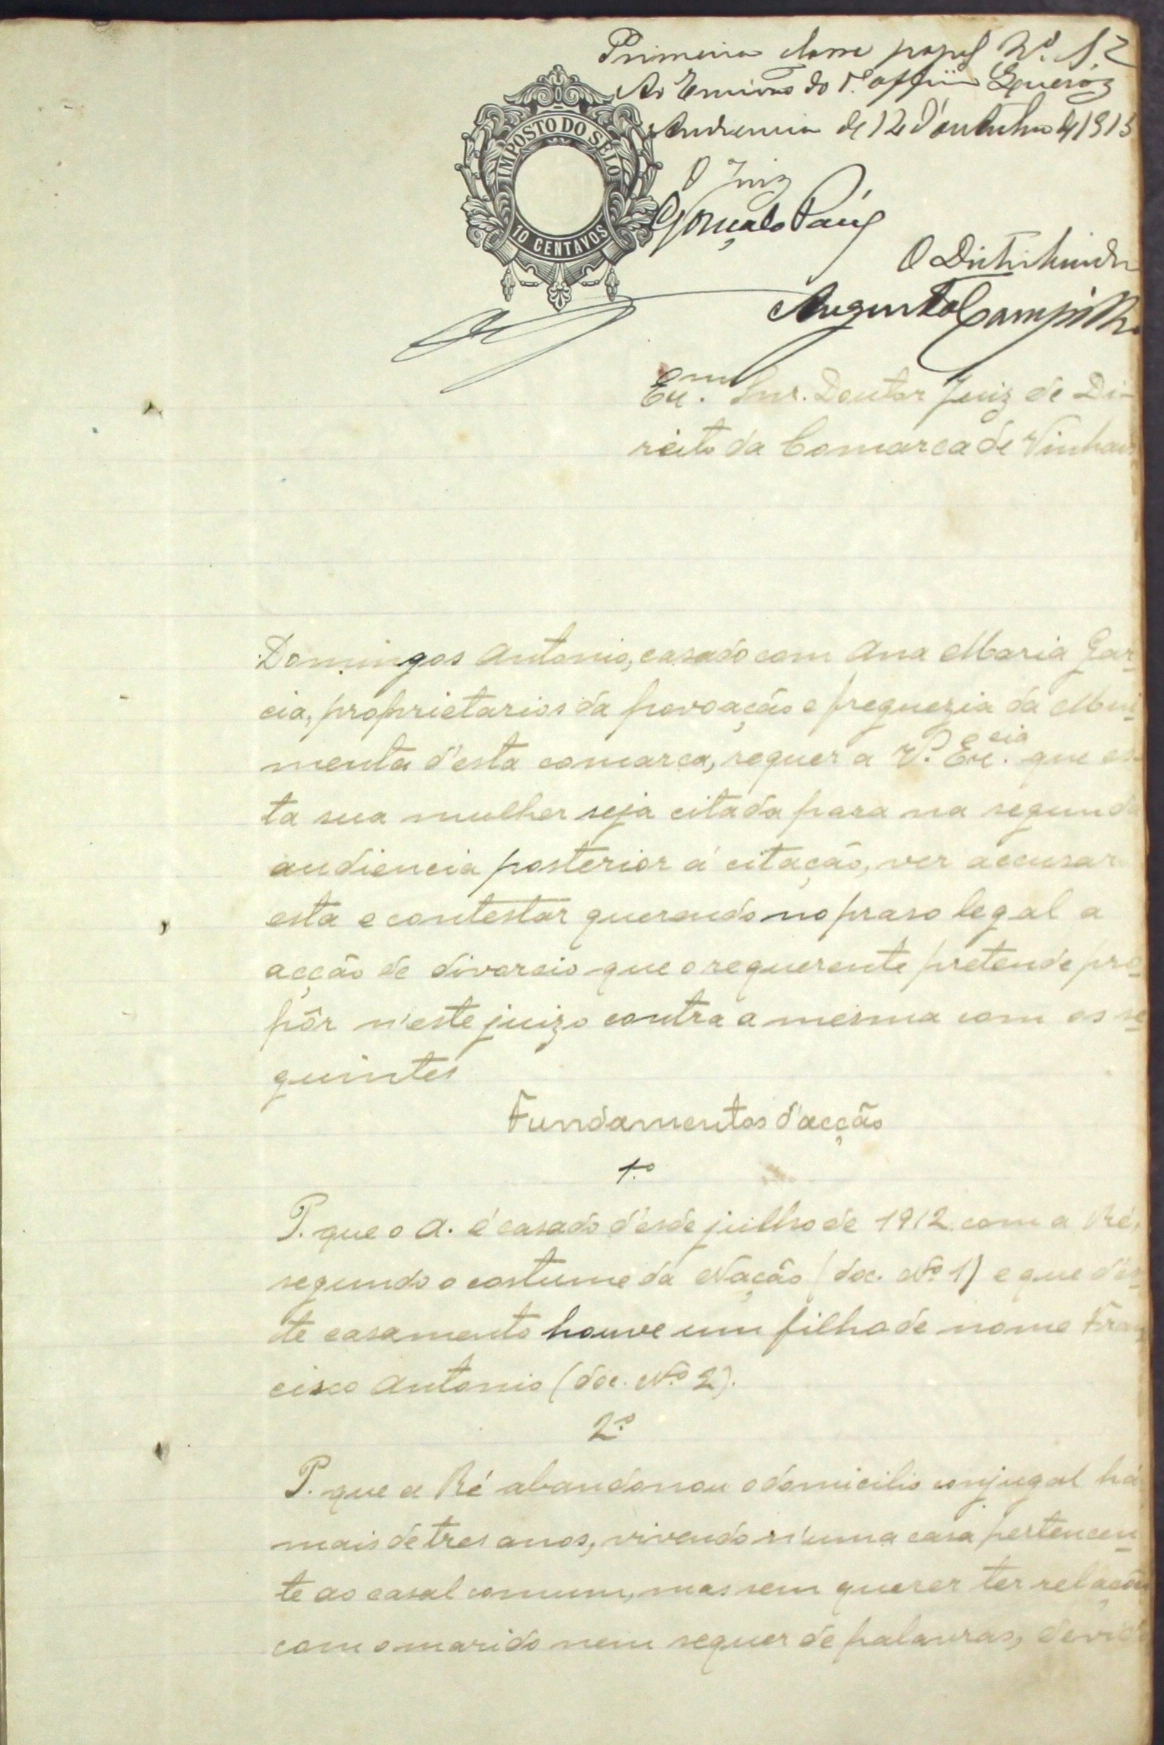 Primeira classe papel Nº. 12
Ao Escrivão do 1º. officio Queróz
Audiencia de 12 d'outubro de 1915
IMPOSTO DO SELO
10 CENTAVOS
O Juiz
Gonçalo Paúl
O Distribuidor
Augusto Campilho
Exmº. Snr. Doutor Juiz de Di-
reito da Comarca de Vinhaes
Domingos Antonio, casado com Ana Maria Gar-
cia, proprietarios da povoação e freguezia da Mui-
menta d'esta comarca, requer a V.ª Ex.cia que es-
ta sua mulher seja citada para na segunda
audiencia posterior á citação, ver accusar
esta e contestar querendo no praso legal a
acção de divorcio que o requerente pretende pro-
pôr n'este juizo contra a mesma com os se-
guintes
Fundamentos d'acção
1.º
P. que o A. é casado d'esde julho de 1912 com a Ré,
segundo o costume da Nação (doc. Nº 1) e que d'es-
te casamento houve um filho de nome Fran-
cisco Antonio (doc. Nº 2).
2.º
P. que a Ré abandonou o domicilio conjugal há
mais de tres anos, vivendo n'uma casa pertencen-
te ao casal comum, mas sem querer ter relação
com o marido nem sequer de palavras, devido